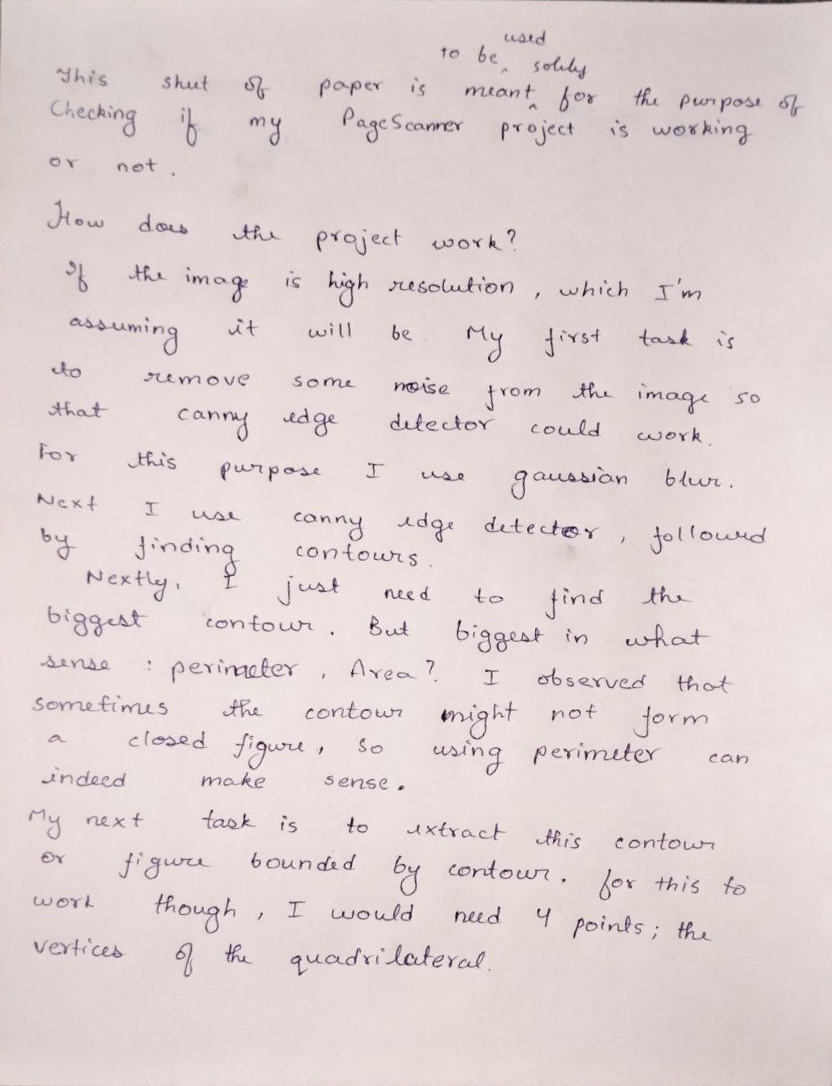 to be used solely
This sheet of paper is meant for the purpose of
Checking if my PageScanner project is working
or not.
How does the project work?
If the image is high resolution, which I'm
assuming it will be. My first task is
to remove some noise from the image so
that canny edge detector could work.
For this purpose I use gaussian blur.
Next I use canny edge detector, followed
by finding contours.
Nextly, I just need to find the
biggest contour. But biggest in what
sense : perimeter, Area? I observed that
sometimes the contour might not form
a closed figure, so using perimeter can
indeed make sense.
My next task is to extract this contour
or figure bounded by contour. for this to
work though, I would need 4 points; the
vertices of the quadrilateral.